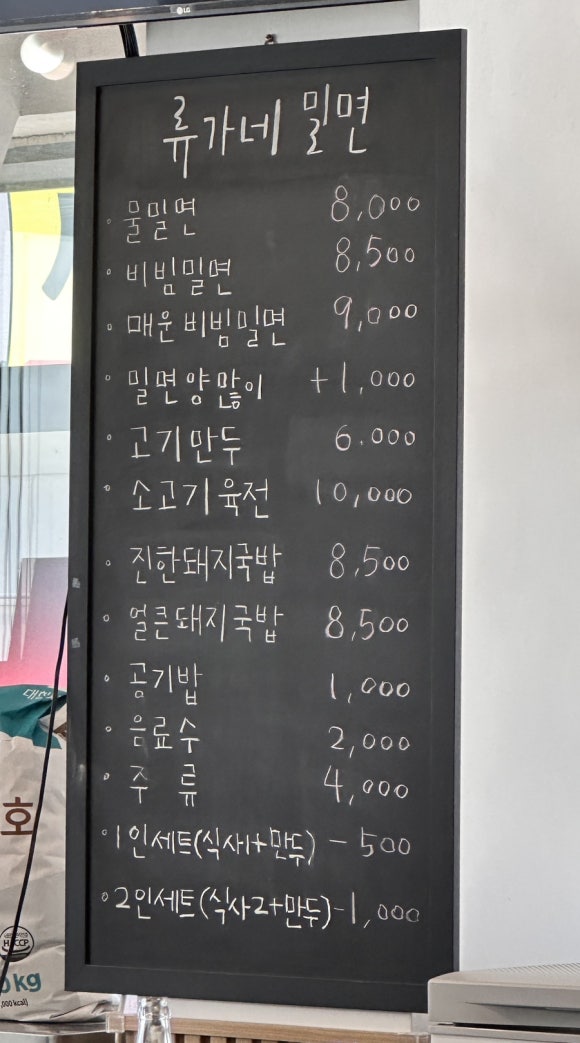 LG
류가네 밀면
물밀면 8,000
비빔밀면 8,500
매운비빔밀면 9,000
밀면양많이 +1,000
고기만두 6.000
소고기육전 10,000
진한돼지국밥 8,500
얼큰돼지국밥 8,500
공기밥 1,000
음료수 2,000
주 류 4,000
1인세트(식사1+만두) - 500
2인세트(식사2+만두)-1,000
호
HACCP
kg
,000 kcal)